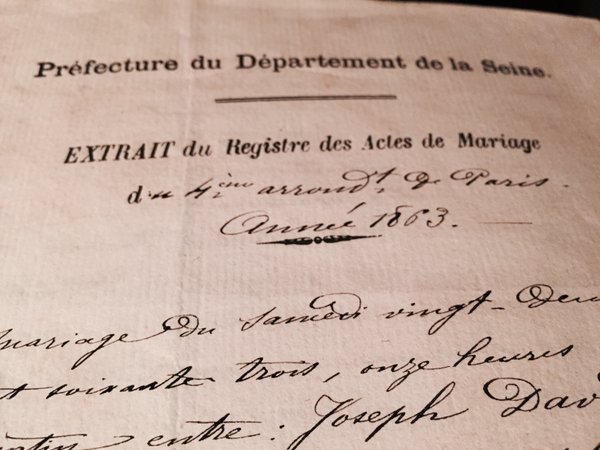 Préfecture du Département de la Seine.
EXTRAIT du Registre des Actes de Mariage
du 4ème arrondt. de Paris.
Année 1863.
mariage du samedi vingt-deu
t soixante trois, onze heures
entre: Joseph Dav